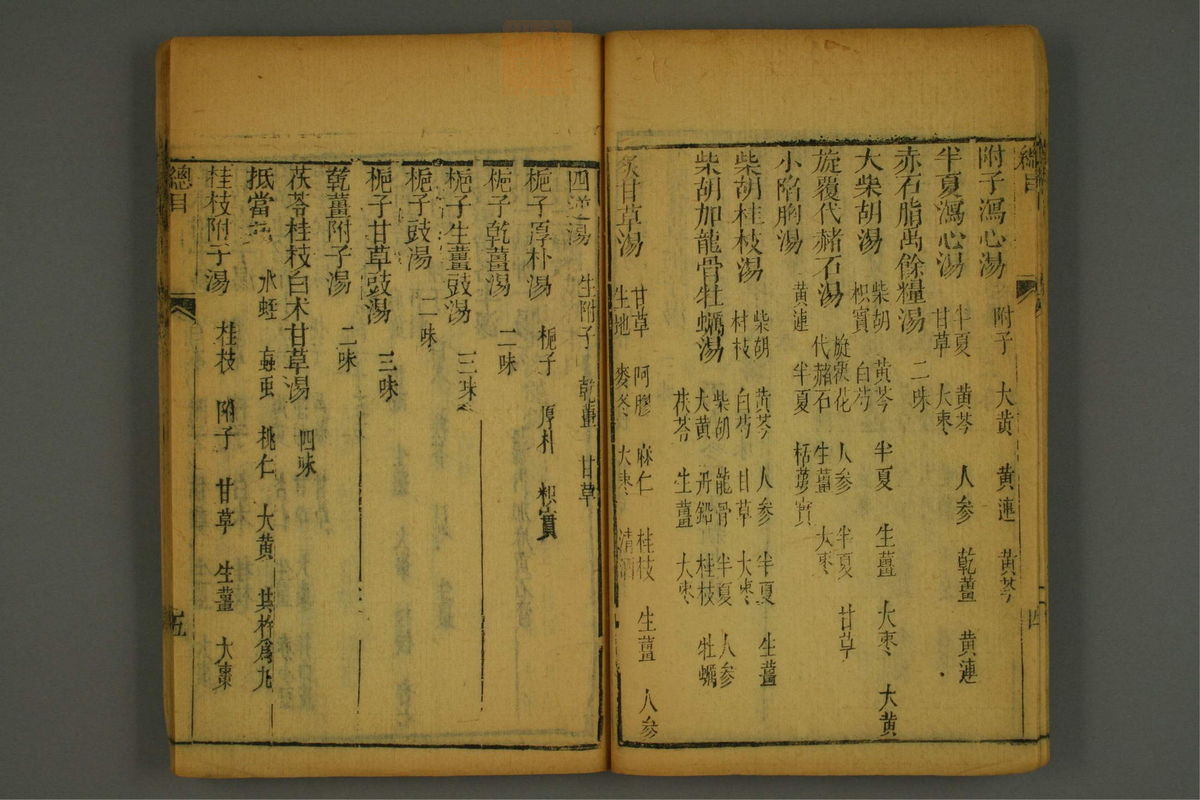 總目 四
附子瀉心湯 附子 大黃 黃連 黃芩
半夏瀉心湯 半夏 黃芩 人參 乾薑 黃連
甘草 大棗
赤石脂禹餘糧湯 二味
大柴胡湯 柴胡 黃芩 半夏 生薑 大棗 大黃
枳實 白芍
旋覆代赭石湯 旋覆花 人參 半夏 甘草
代赭石 生薑 大棗
小陷胸湯 黃連 半夏 栝蔞實
柴胡桂枝湯 柴胡 黃芩 人參 半夏 生薑
桂枝 白芍 甘草 大棗
柴胡加龍骨牡蠣湯 柴胡 龍骨 半夏 人參
大黃 丹鉛 桂枝 牡蠣
茯苓 生薑 大棗
炙甘草湯 甘草 阿膠 麻仁 桂枝 生薑 人參
生地 麥冬 大棗 清酒
四逆湯 生附子 乾薑 甘草
梔子厚朴湯 梔子 厚朴 枳實
梔子乾薑湯 二味
梔子生薑豉湯 三味
梔子豉湯 二味
梔子甘草豉湯 三味
乾薑附子湯 二味
茯苓桂枝白术甘草湯 四味
抵當 水蛭 䖟虫 桃仁 大黃 其杵爲丸
桂枝附子湯 桂枝 附子 甘草 生薑 大棗
總目 五